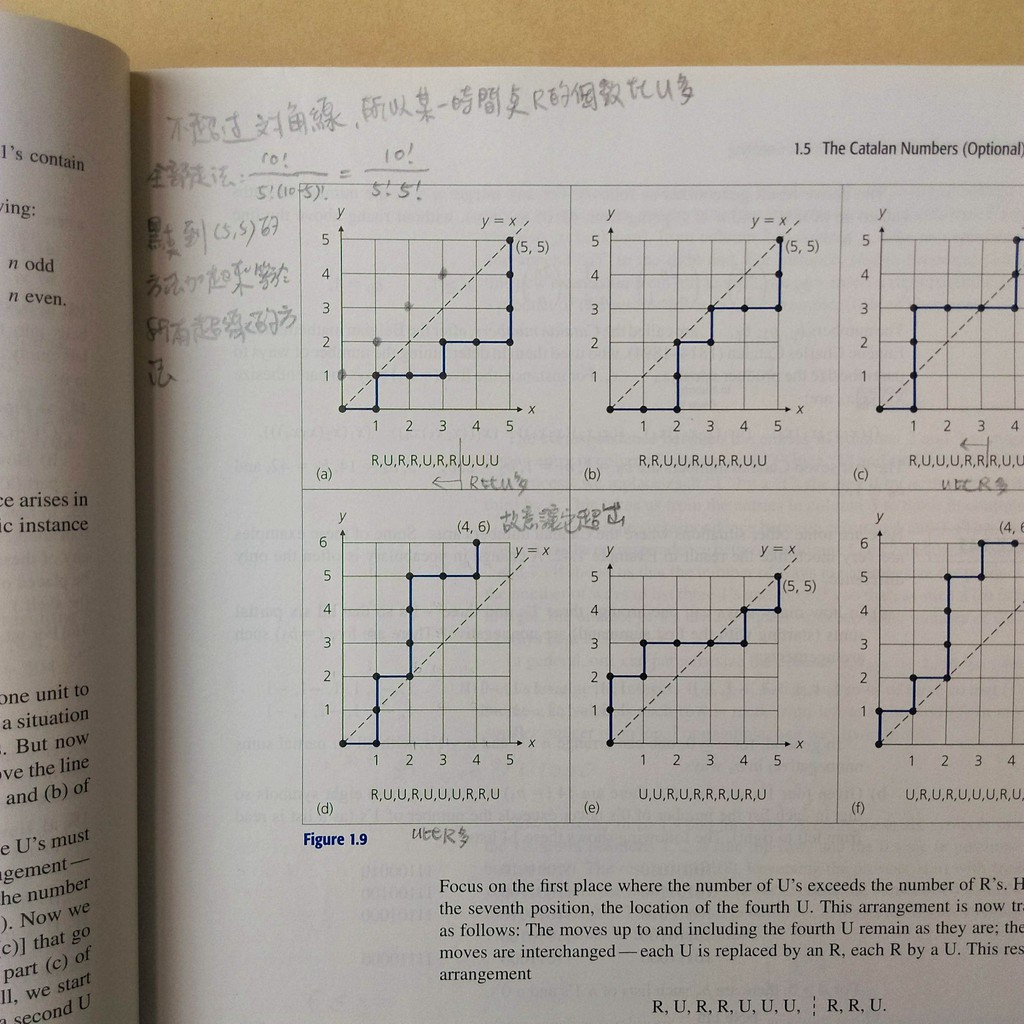 1's contain
ving:
n odd
n even.
ce arises in
ic instance
one unit to
a situation
s. But now
ove the line
and (b) of
e U's must
ngement—
he number
). Now we
(c)] that go
part (c) of
ll, we start
a second U
不超过对角線,所以某一時間点R的個數比U多
全部走法: 10! / 5!(10-5)! = 10! / 5! 5!
到(5,5)的
方法加起來等於
所有超線的方
法
1.5 The Catalan Numbers (Optional)
y
y = x
5
(5, 5)
4
3
2
1
x
1 2 3 4 5
(a)
R,U,R,R,U,R,R,U,U,U
← R比U多
y
y = x
5
(5, 5)
4
3
2
1
x
1 2 3 4 5
(b)
R,R,U,U,R,U,R,R,U,U
y
5
4
3
2
1
1 2 3 4
(c)
R,U,U,U,R,R,R,U,U
U比R多
y
(4, 6)
故意讓它超出
6
y = x
5
4
3
2
1
x
1 2 3 4 5
(d)
R,U,U,R,U,U,U,R,R,U
U比R多
y
y = x
5
(5, 5)
4
3
2
1
x
1 2 3 4 5
(e)
U,U,R,U,R,R,R,U,R,U
y
(4, 6
6
5
4
3
2
1
1 2 3 4
(f)
U,R,U,R,U,U,U,R,
Figure 1.9
Focus on the first place where the number of U's exceeds the number of R's. H
the seventh position, the location of the fourth U. This arrangement is now tra
as follows: The moves up to and including the fourth U remain as they are; the
moves are interchanged—each U is replaced by an R, each R by a U. This res
arrangement
R, U, R, R, U, U, U, ¦ R, R, U.